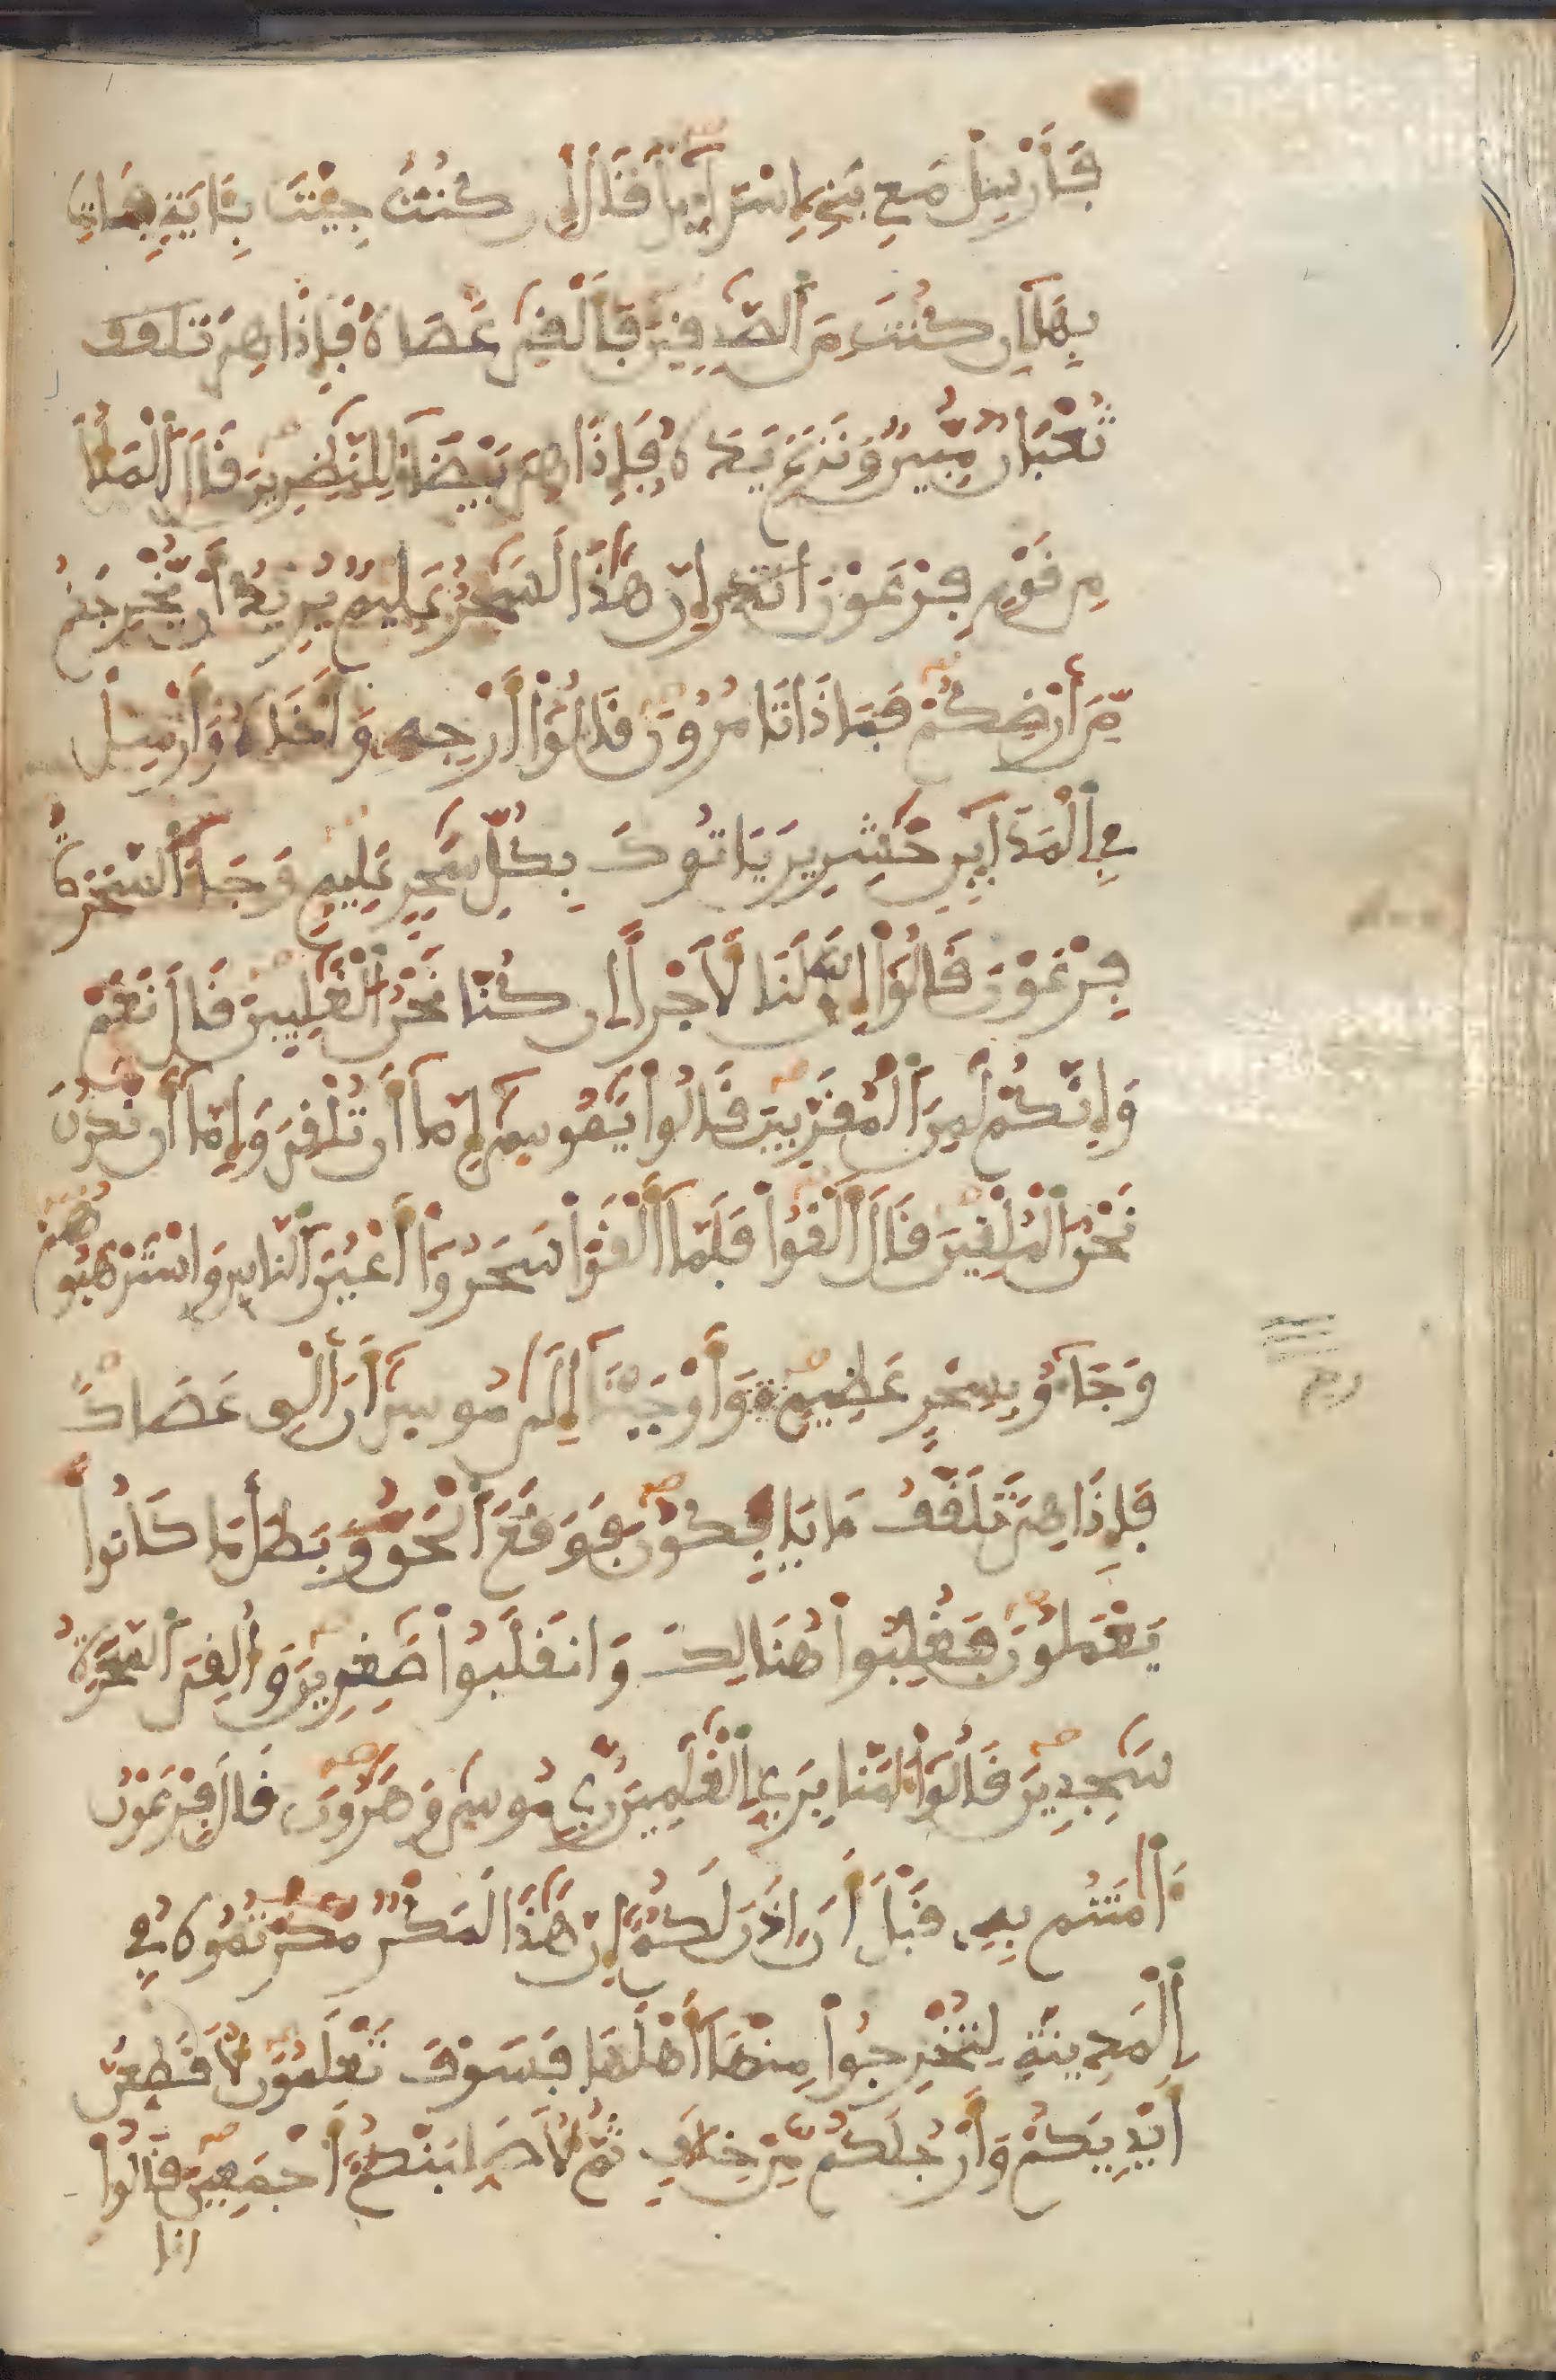 فَأَرْسِلْ مَعِي بَنِي إِسْرَآءِيلَ قَالَ إِن كُنتَ جِئْتَ بِـَٔايَةٍ فَاتِ
بِهَآ إِن كُنتَ مِنَ ٱلصَّٰدِقِينَ فَأَلْقَىٰ عَصَاهُ فَإِذَا هِيَ تلقف
ثُعْبَانٌ مُّبِينٌ وَنَزَعَ يَدَهُ فَإِذَا هِيَ بَيْضَآءُ لِلنَّٰظِرِينَ قَالَ ٱلْمَلَأُ
مِن قَوْمِ فِرْعَوْنَ إِنَّ هَٰذَا لَسَٰحِرٌ عَلِيمٌ يُرِيدُ أَنْ يُّخْرِجَكُم
مِّنَ أَرْضِكُمْ فَمَاذَا تَامُرُونَ قَالُوٓاْ أَرْجِهِ وَأَخَاهُ وَأَرْسِلْ
فِي ٱلْمَدَآئِنِ حَٰشِرِينَ يَاتُوكَ بِكُلِّ سَٰحِرٍ عَلِيمٍ وَجَآءَ ٱلسَّحَرَةُ
فِرْعَوْنَ قَالُوٓاْ إِنَّ لَنَا لَأَجْرًا إِن كُنَّا نَحْنُ ٱلْغَٰلِبِينَ قَالَ نَعَمْ
وَإِنَّكُمْ لَمِنَ ٱلْمُقَرَّبِينَ قَالُواْ يَٰمُوسَىٰٓ إِمَّآ أَن تُلْقِيَ وَإِمَّآ أَن نَّكُونَ
نَحْنُ ٱلْمُلْقِينَ قَالَ أَلْقُواْ فَلَمَّآ أَلْقَوْاْ سَحَرُوٓاْ أَعْيُنَ ٱلنَّاسِ وَاسْتَرْهَبُوهُمْ
وَجَآءُو بِسِحْرٍ عَظِيمٍ وَأَوْحَيْنَآ إِلَىٰ مُوسَىٰٓ أَنَ أَلْقِ عَصَاكَ
فَإِذَا هِيَ تَلَقَّفُ مَا يَافِكُونَ فَوَقَعَ ٱلْحَقُّ وَبَطَلَ مَا كَانُواْ
يَعْمَلُونَ فَغُلِبُواْ هُنَالِكَ وَانقَلَبُواْ صَٰغِرِينَ وَأُلْقِيَ ٱلسَّحَرَةُ
سَٰجِدِينَ قَالُوٓاْ ءَامَنَّا بِرَبِّ ٱلْعَٰلَمِينَ رَبِّ مُوسَىٰ وَهَٰرُونَ قَالَ فِرْعَوْنُ
ءَاٰمَنتُم بِهِ قَبْلَ أَنَ ـاذَنَ لَكُمُ إِنَّ هَٰذَا لَمَكْرٌ مَّكَرْتُمُوهُ فِي
ٱلْمَدِينَةِ لِتُخْرِجُواْ مِنْهَآ أَهْلَهَا فَسَوْفَ تَعْلَمُونَ لَأُقَطِّعَنَّ
أَيْدِيَكُمْ وَأَرْجُلَكُم مِّنْ خِلَٰفٍ ثُمَّ لَأُصَلِّبَنَّكُمُ أَجْمَعِينَ قَالُوٓاْ
انا